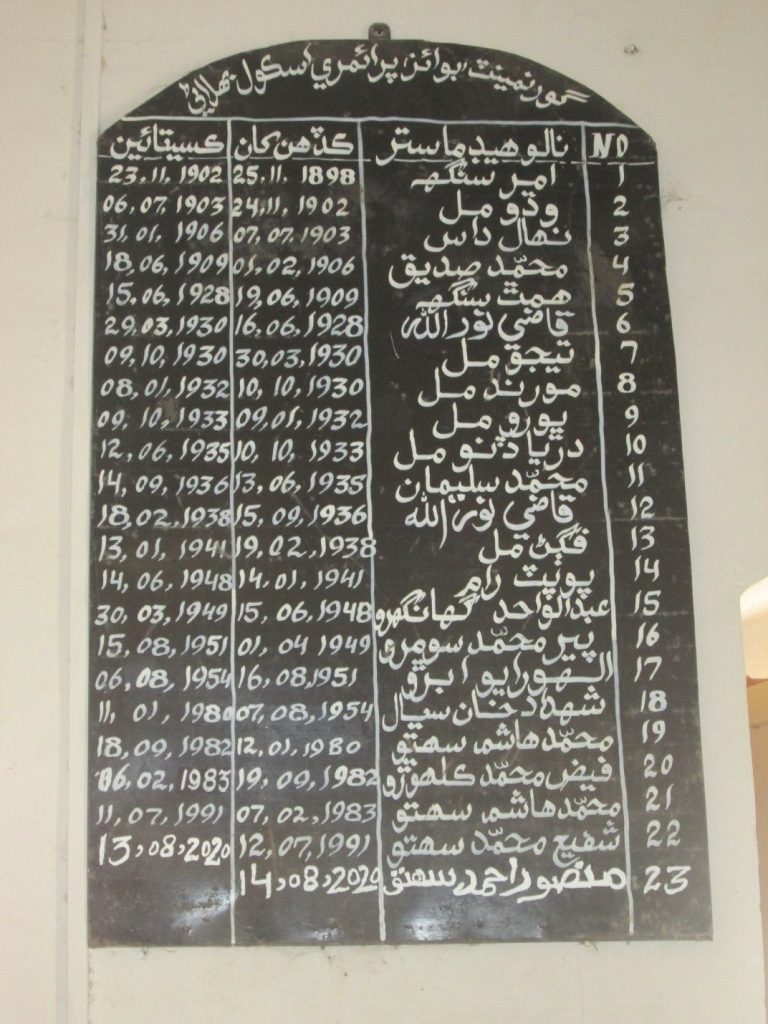 گورنمينٽ بوائز پرائمري اسڪول ھلاڻي
NO نالو هيڊ ماستر ڪڏهن کان ڪيستائين
1 امر سنگهه 25.11.1898 23.11.1902
2 وڌو مل 24.11.1902 06.07.1903
3 نهال داس 07.07.1903 31.01.1906
4 محمّد صديق 01.02.1906 18.06.1909
5 همٿ سنگهه 19.06.1909 15.06.1928
6 قاضي نور الله 16.06.1928 29.03.1930
7 تيجو مل 30.03.1930 09.10.1930
8 مورند مل 10.10.1930 08.01.1932
9 پورو مل 09.01.1932 09.10.1933
10 دريا ڏنو مل 10.10.1933 12.06.1935
11 محمّد سليمان 13.06.1935 14.09.1936
12 قاضي نور الله 15.09.1936 18.02.1938
13 ڦڳڻ مل 19.02.1938 13.01.1941
14 پوپٽ رام 14.01.1941 14.06.1948
15 عبدالواحد گهانگهرو 15.06.1948 30.03.1949
16 پير محمّد سومرو 01.04 1949 15.08.1951
17 الهورايو ابڙو 16.08.1951 06.08.1954
18 شهداد خان سيال 07.08.1954 11.01.1980
19 محمّد هاشم سهتو 12.01.1980 18.09.1982
20 فيض محمّد ڪلهوڙو 19.09.1982 06.02.1983
21 محمّد هاشم سهتو 07.02.1983 11.07.1991
22 شفيع محمّد سهتو 12.07.1991 13.08.2020
23 منصور احمد سهتو 14.08.2020